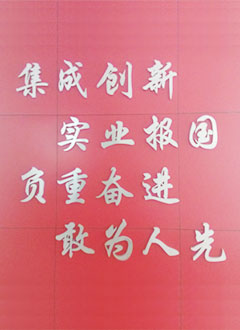 集成创新
实业报国
负重奋进
敢为人先